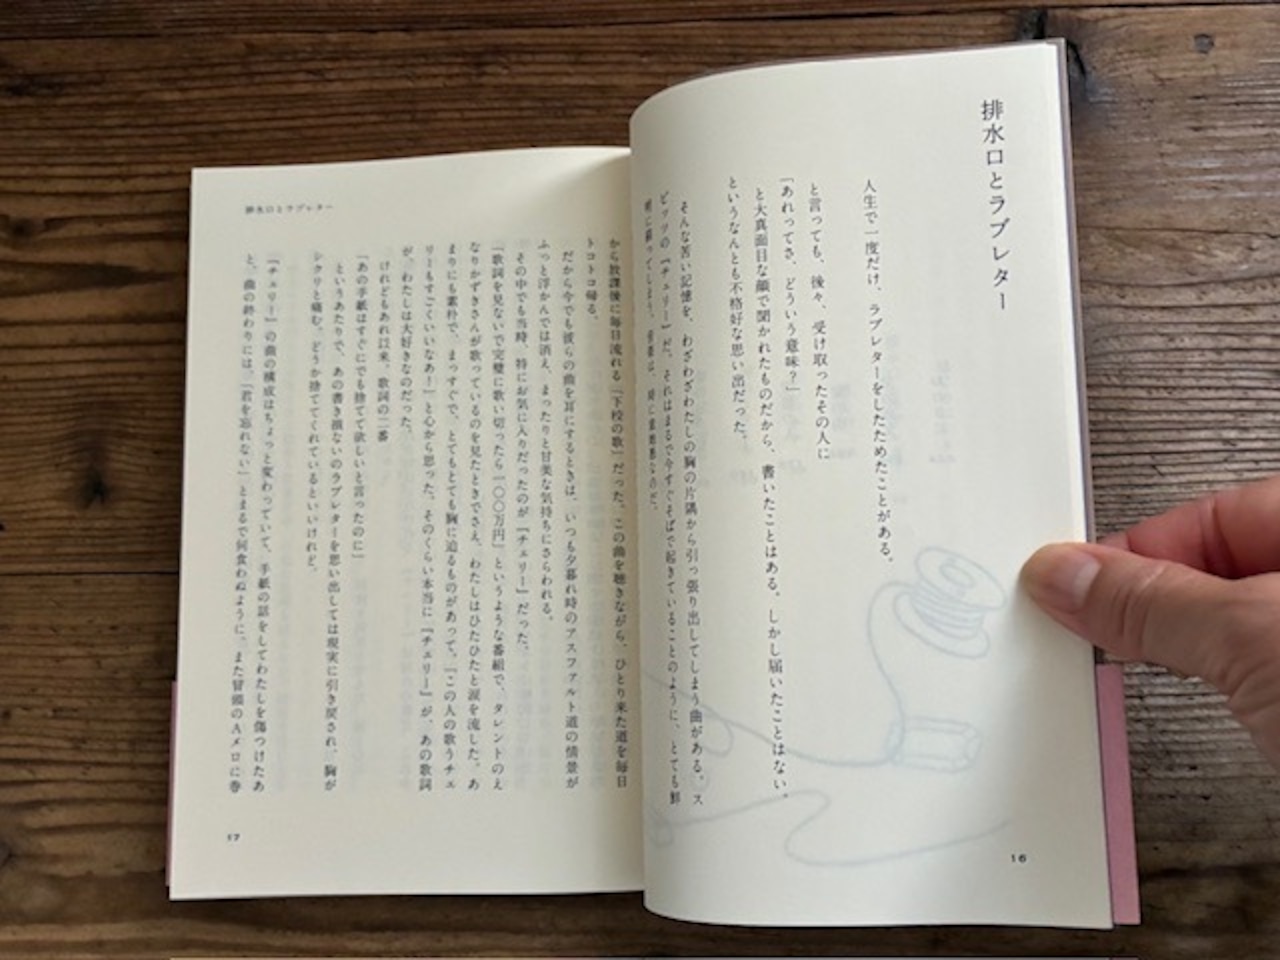 排水口とラブレター
人生で一度だけ、ラブレターをしたためたことがある。
と言っても、後々、受け取ったその人に
「あれってさ、どういう意味？」
と大真面目な顔で聞かれたものだから、書いたことはある。しかし届いたことはない。
というなんとも不格好な思い出だった。
そんな苦い記憶を、わざわざわたしの胸の片隅から引っ張り出してしまう曲がある。ス
ピッツの『チェリー』だ。それはまるで今すぐそばで起きていることのように、とても鮮
明に蘇ってしまう。音楽は、時に意地悪なのだ。
16
排水口とラブレター
から放課後に毎日流れる「下校の歌」だった。この曲を聴きながら、ひとり来た道を毎日
トコトコ帰る。
だから今でも彼らの曲を耳にするときは、いつも夕暮れ時のアスファルト道の情景が
ふっと浮かんでは消え、まったりと甘美な気持ちにさらわれる。
その中でも当時、特にお気に入りだったのが『チェリー』だった。
「歌詞を見ないで完璧に歌い切ったら一〇〇万円」というような番組で、タレントのえ
なりかずきさんが歌っているのを見たときでさえ、わたしはひたひたと涙を流した。あ
まりにも素朴で、まっすぐで、とてもとても胸に迫るものがあって。「この人の歌うチェ
リーもすごくいいなあ！」と心から思った。そのくらい本当に『チェリー』が、あの歌詞
が、わたしは大好きなのだった。
けれどもあれ以来、歌詞の二番
「あの手紙はすぐにでも捨てて欲しいと言ったのに」
というあたりで、あの書き損ないのラブレターを思い出しては現実に引き戻され、胸が
シクリと痛む。どうか捨ててくれているといいけれど。
『チェリー』の曲の構成はちょっと変わっていて、手紙の話をしてわたしを傷つけたあ
と、曲の終わりには、「君を忘れない」とまるで何食わぬように、また冒頭のAメロに巻
17